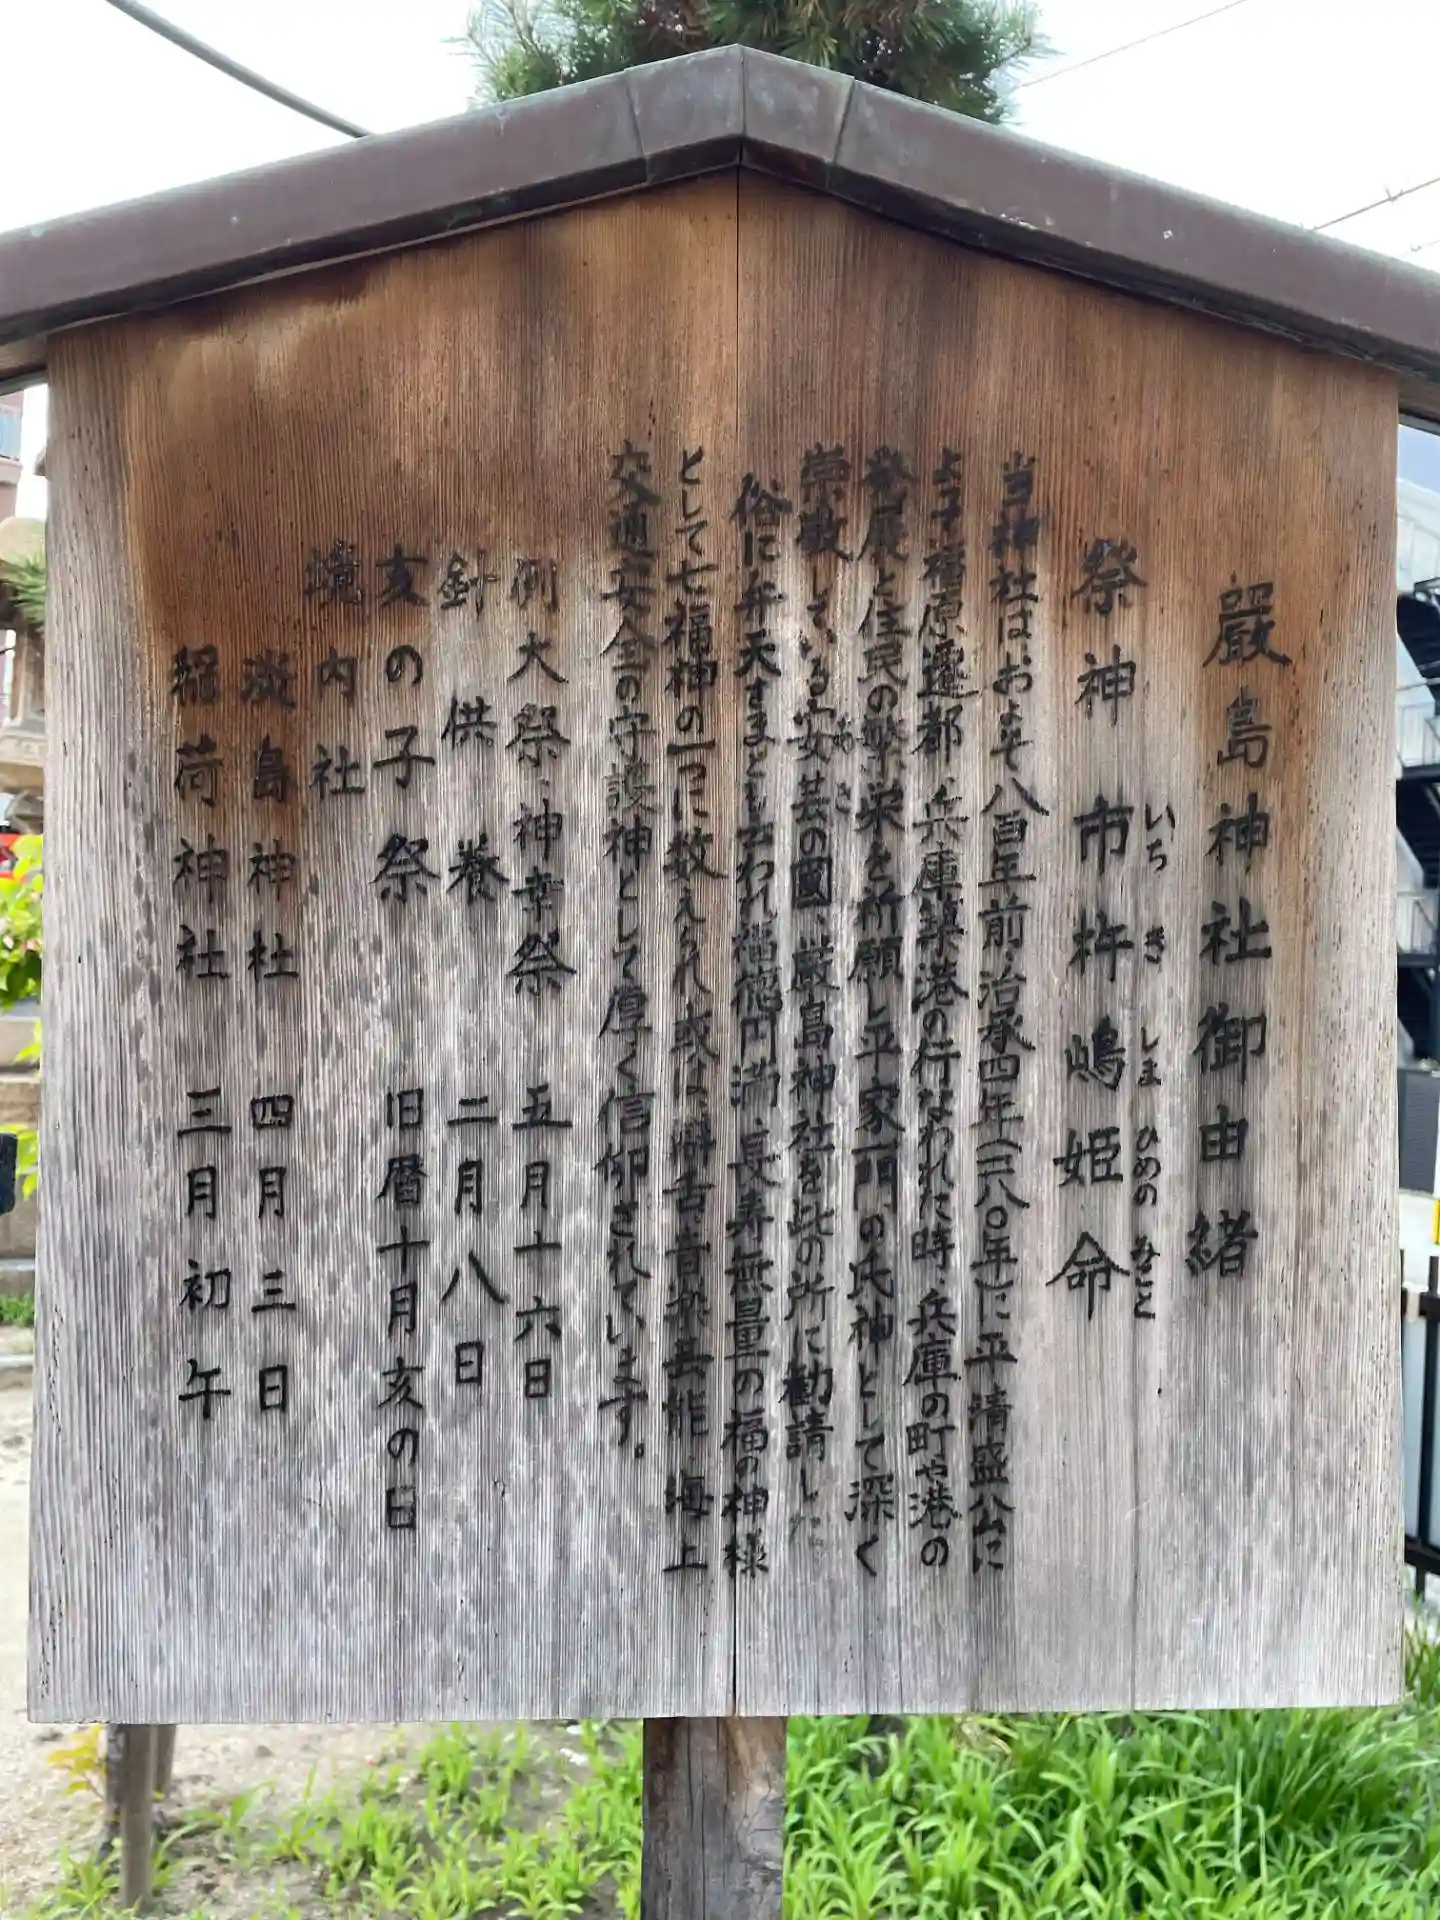 嚴島神社御由緒
祭神 市杵嶋姫命
いちきしまひめのみこと
当神社はおよそ八百年前、治承四年(一一八〇年)に平清盛公に
よって福原遷都、兵庫築港の行なわれた時、兵庫の町や港の
発展と住民の繁栄を祈願し平家一門の氏神として深く
崇敬している安芸の國、厳島神社を此の所に勧請した
俗に弁天さまとも云われ福徳円満、長寿無量の福の神様
として七福神の一つに数えられ或は、辯舌、音楽、芸能、海上
交通安全の守護神として厚く信仰されています。
例大祭・神幸祭 五月十六日
針供養 二月八日
亥の子祭 旧暦十月亥の日
境内社
淡島神社 四月三日
稲荷神社 三月初午